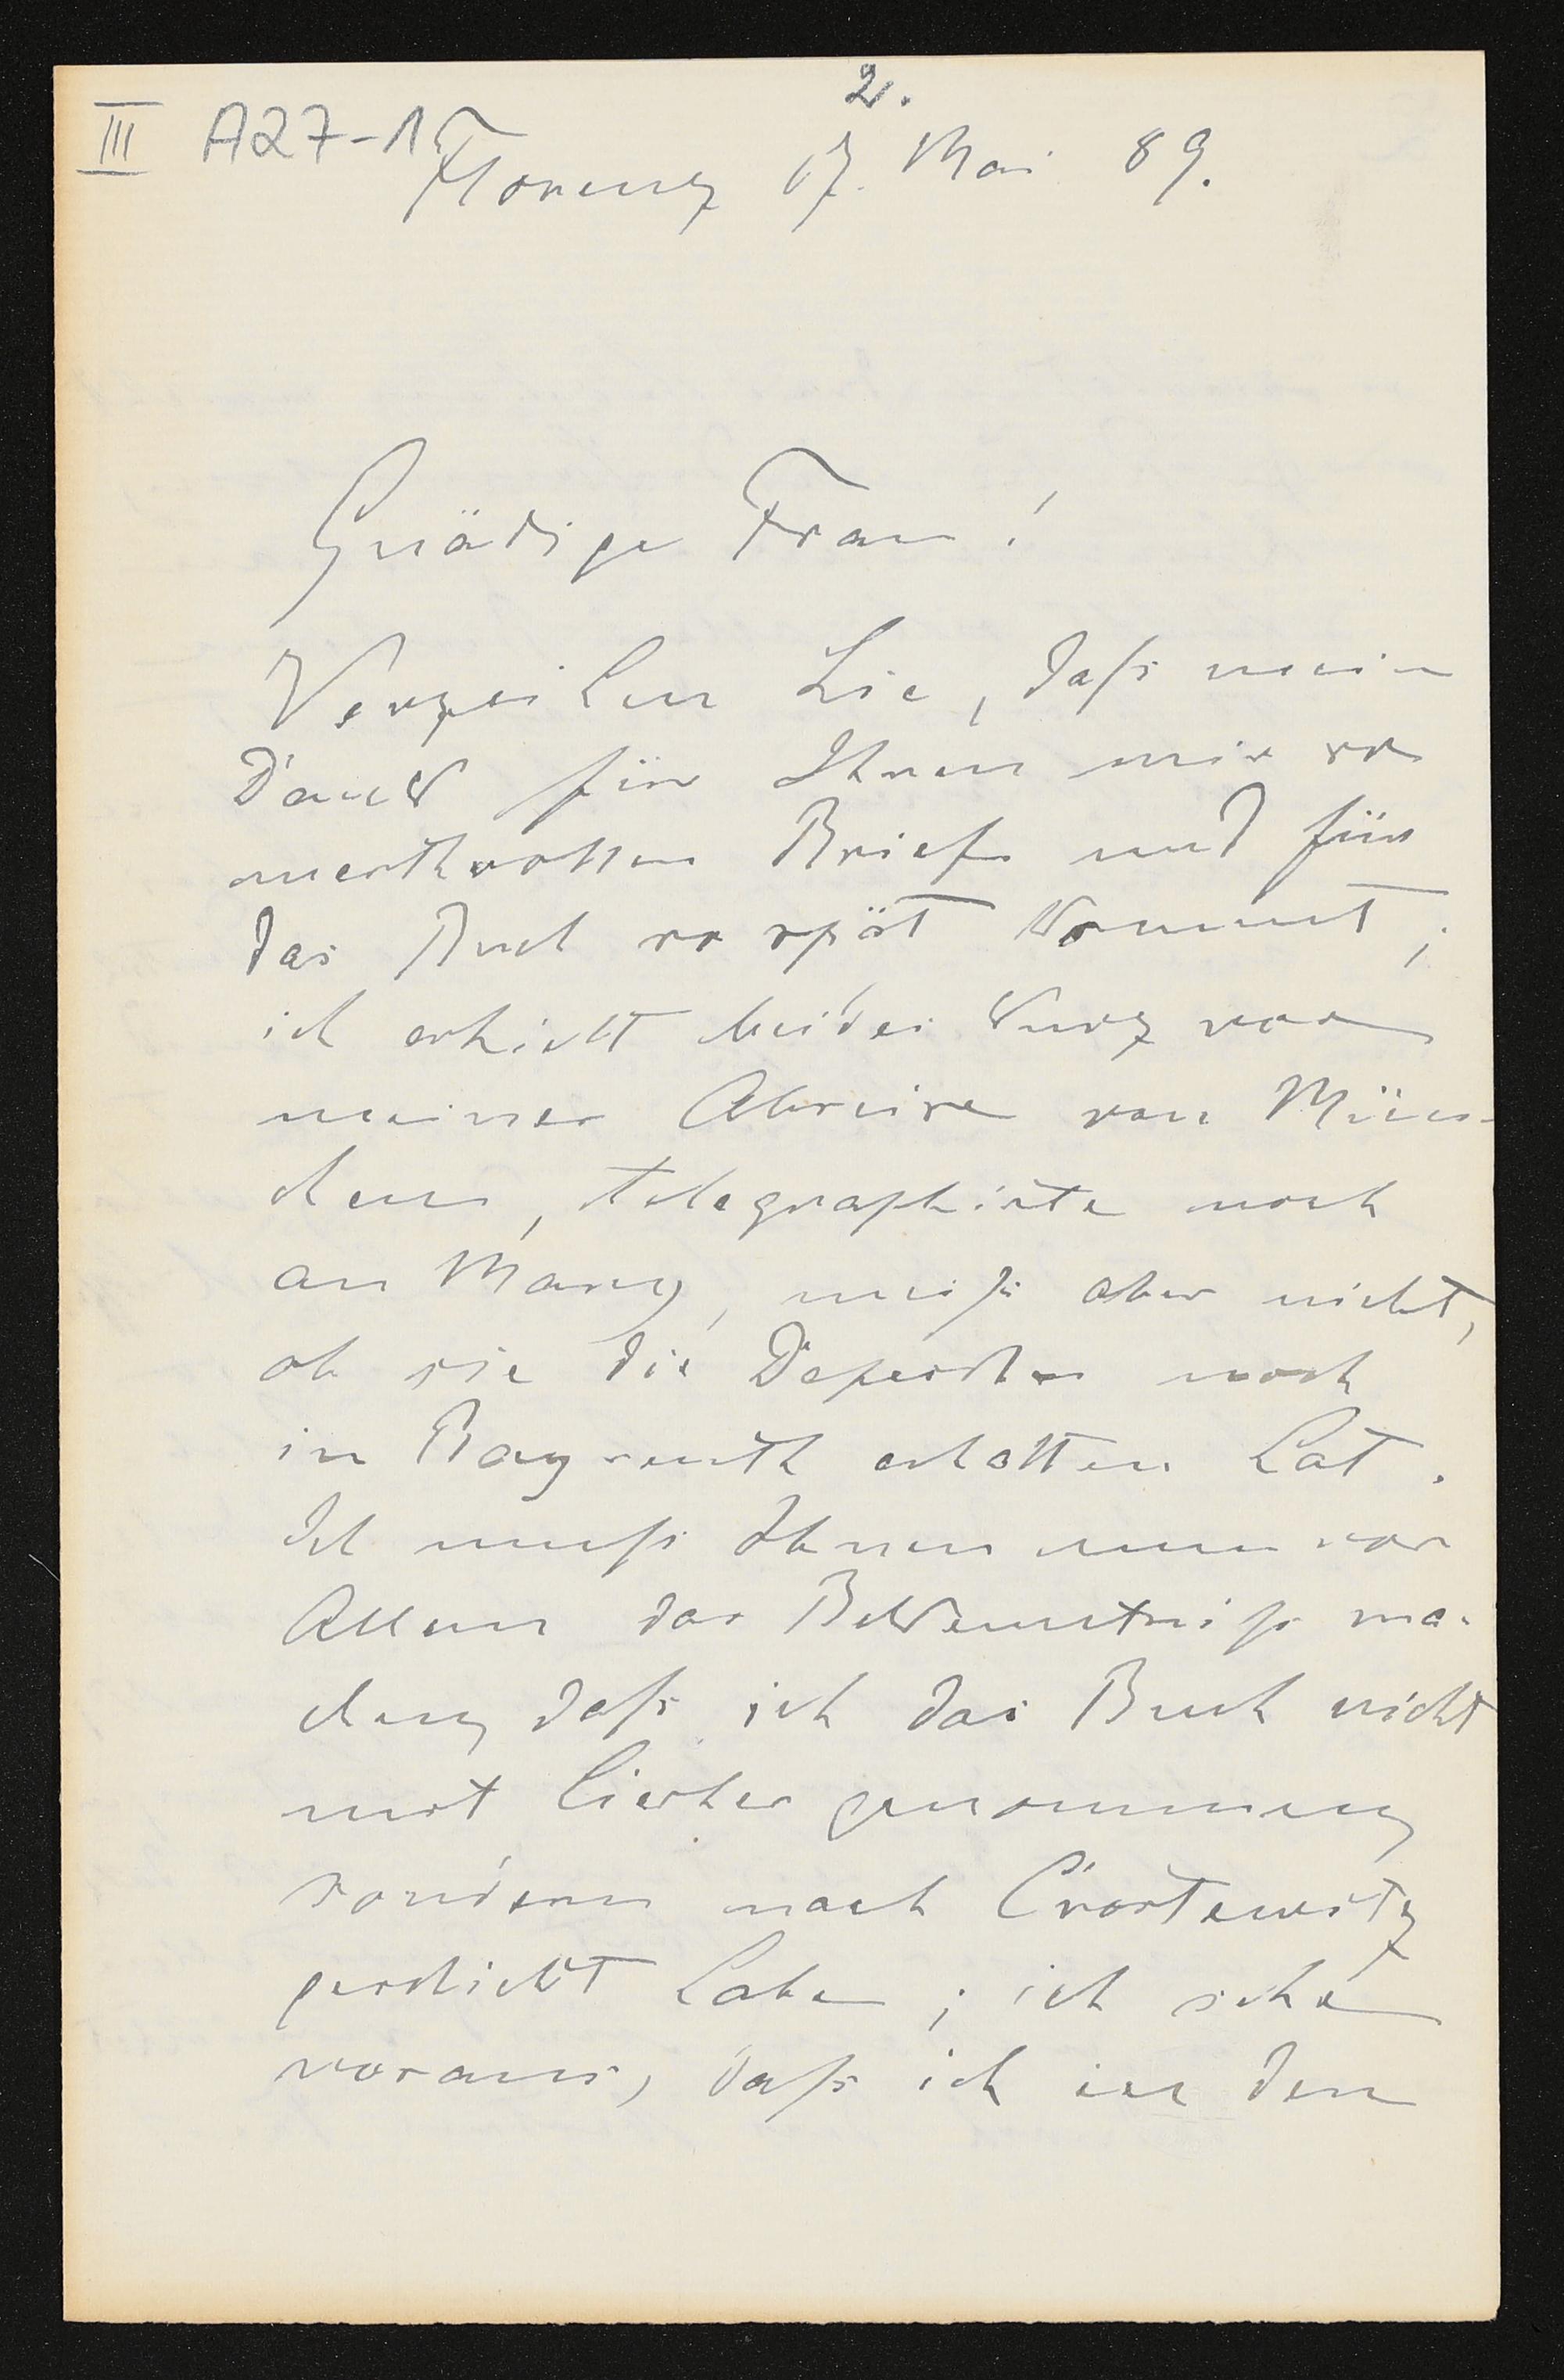 2.
III A27-1
Florenz 17. Mai 89.
Gnädige Frau!
Verzeihen Sie, daß mein
Dank für Ihren mir so
werthvollen Brief und für
das Buch so spät kommt;
ich erhielt beides kurz vor
meiner Abreise von Mün-
chen, telegraphirte noch
an Mary, weiß aber nicht,
ob sie die Depesche noch
in Bayreuth erhalten hat.
Ich muß Ihnen nun vor
Allem das Bekenntniß ma-
chen, daß ich das Buch nicht
mit hierher genommen,
sondern nach Crostewitz
geschickt habe; ich sehe
voraus, daß ich in den